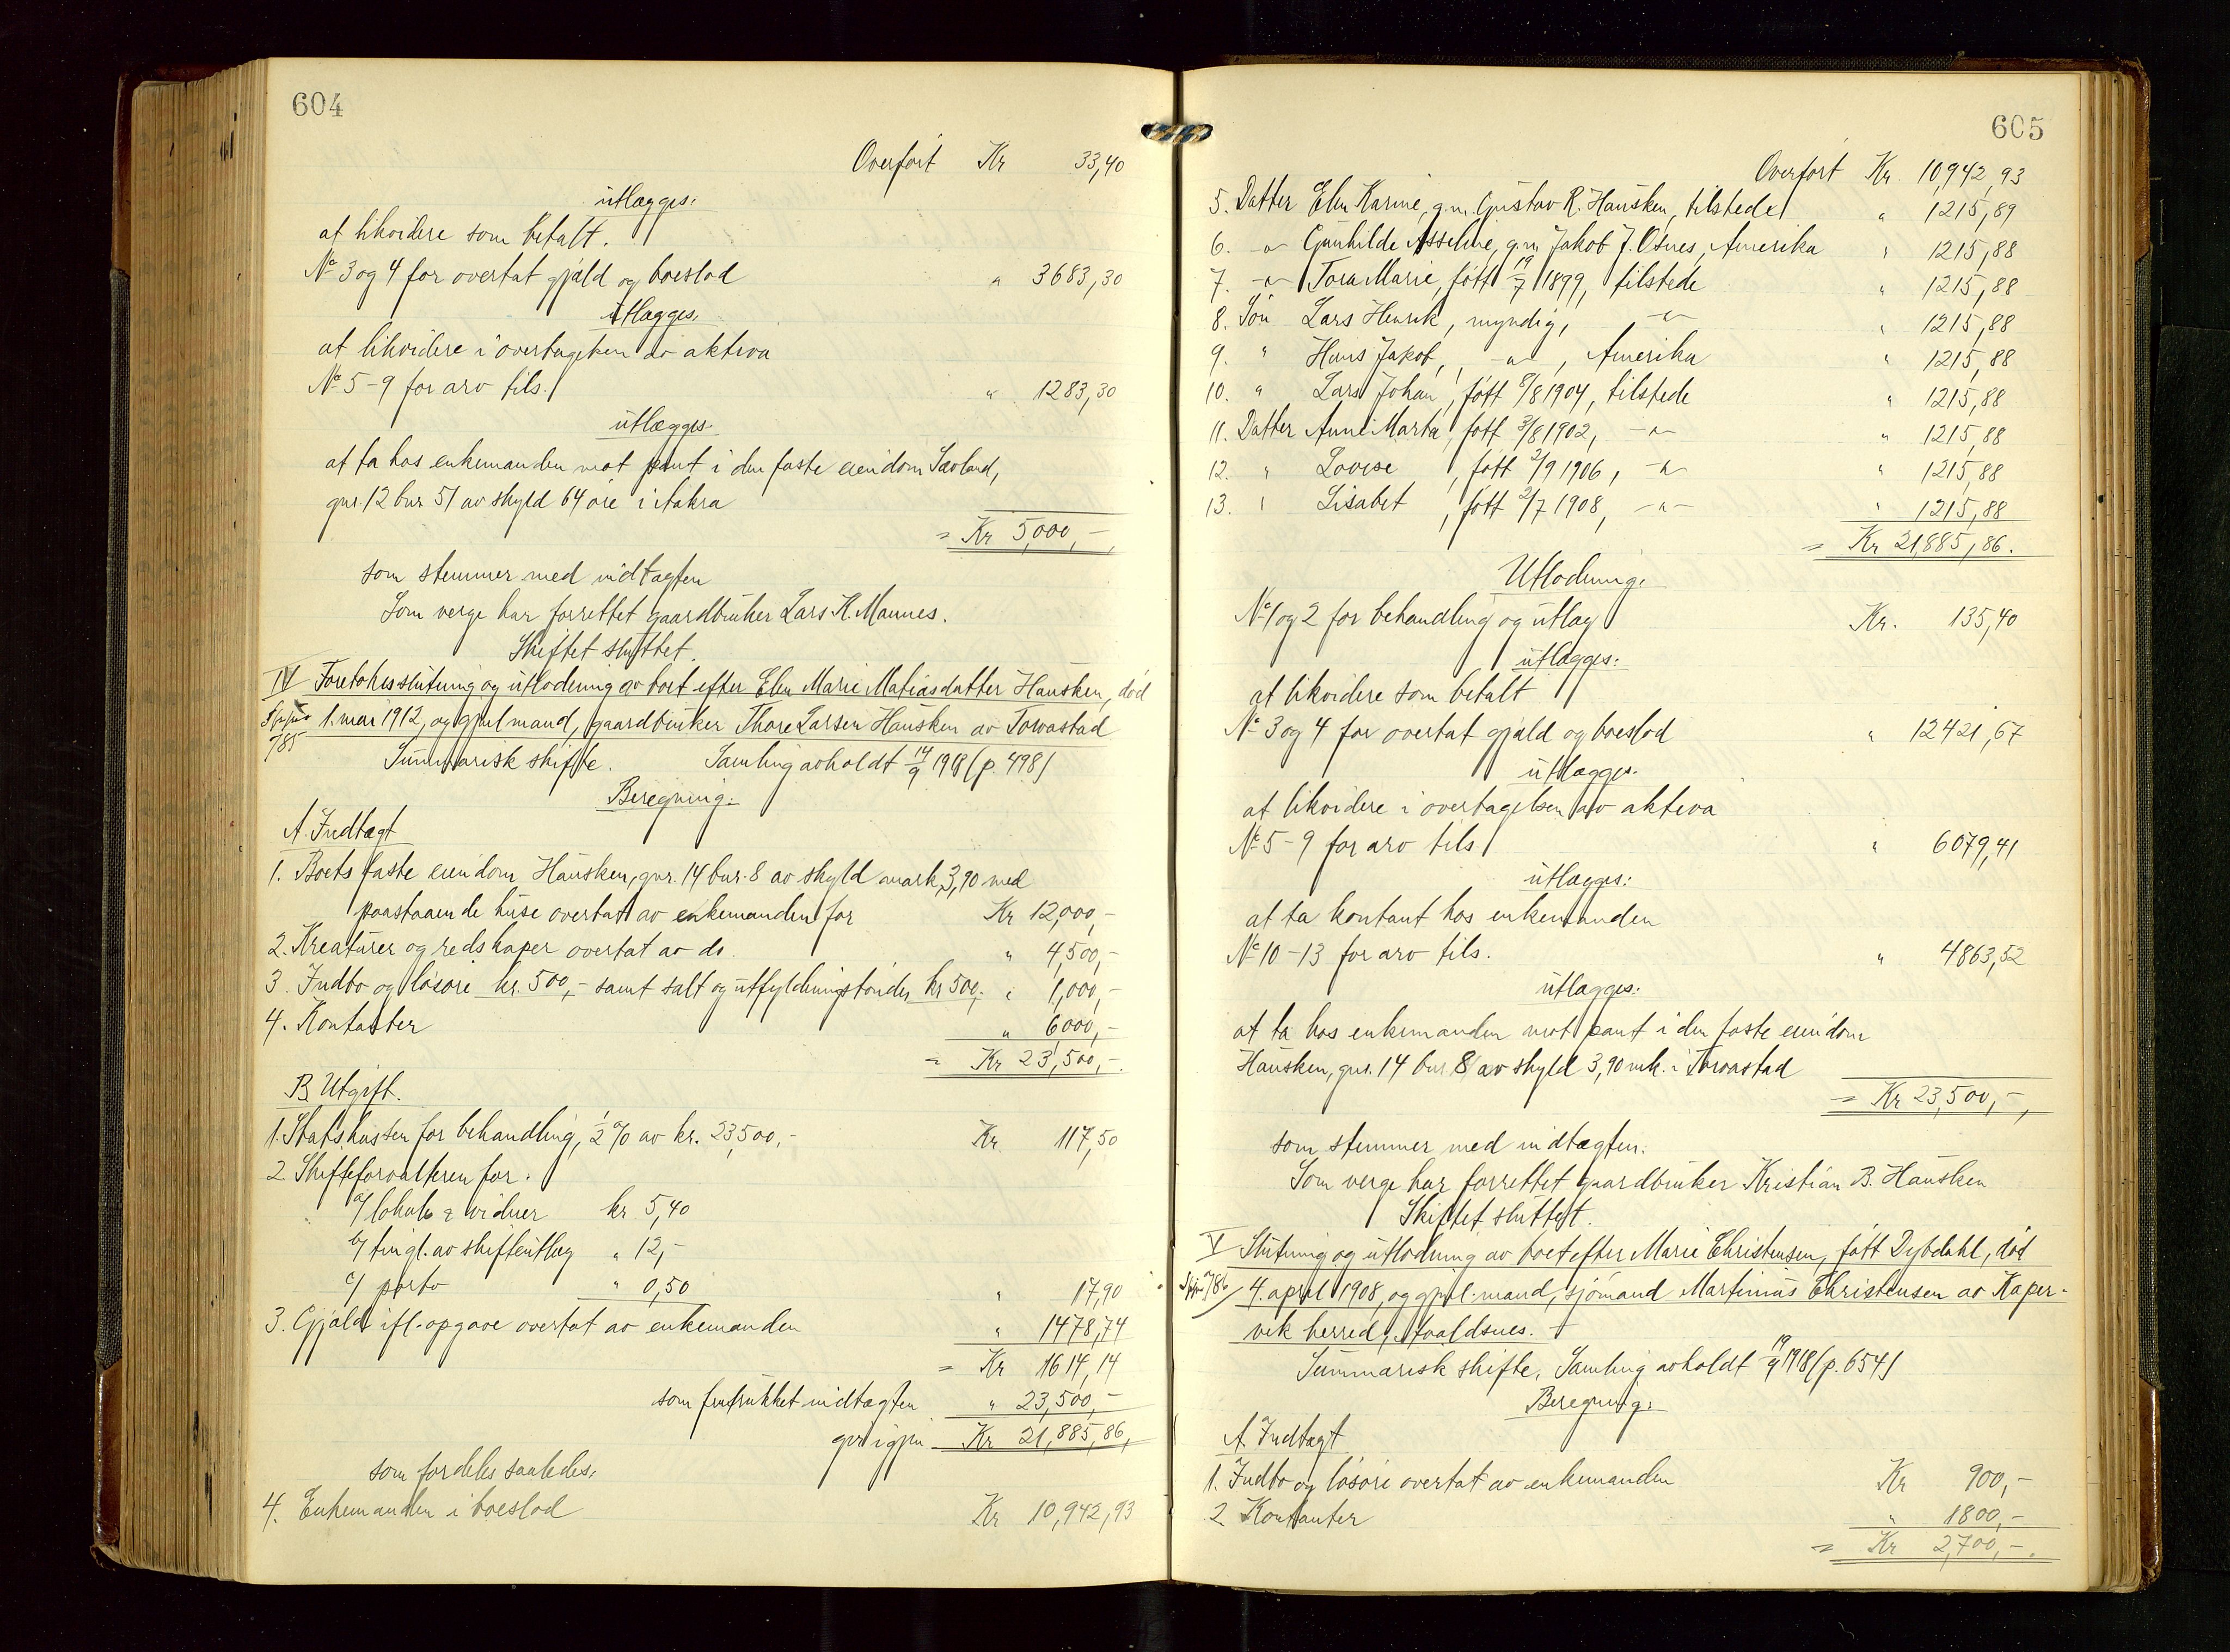 604
Overført Kr 33,40
utlægges:
at likvidere som betalt.
No 3 og 4 for overtat gjæld og boeslod " 3683,30
utlægges:
at likvidere i overtagelsen av aktiva
No 5-9 for arv tils. " 1283,30
utlægges:
at ta hos enkemanden mot pant i den faste eiendom Sævland,
gnr. 12 bnr 51 av skyld 64 øre i Aakra
= Kr 5,000,-
som stemmer med indtægten
Som verge har forrettet gaardbruker Lars K. Mannes.
Skiftet sluttet.
IV Foretokes slutning og utlodning av boet efter Elen Marie Matiasdatter Hausken, død
1. mai 1912, og gjenl. mand, gaardbruker Thore Larsen Hausken av Torvastad
785
Summarisk skifte. Samling avholdt 14/9 1918 (p. 498)
Beregning:
A. Indtægt
1. Boets faste eiendom Hausken, gnr. 14 bnr. 8 av skyld mark 3,90 med
paastaaende huse overtat av enkemanden for Kr 12,000,-
2. Kreaturer og redskaper overtat av do. " 4,500,-
3. Indbo og løsøre kr. 500,- samt salt og utfyldningstønder kr 500,- " 1,000,-
4. Kontanter " 6000,-
= Kr 23,500,-.
B. Utgift.
1. Statskassen for behandling, 1/2 % av kr. 23,500,- Kr 117,50
2. Skifteforvalteren for:
a/ lokale & vidner kr 5,40
b/ tingl. av skifteutlæg " 12,-
c/ porto " 0,50 " 17,90
3. Gjæld ifl. opgave overtat av enkemanden " 1478,74
= Kr 1614,14
som fratrukket indtægten " 23,500,-
gir igjen Kr 21,885,86,
som fordeles saaledes:
4. Enkemanden i boeslod Kr 10,942,93
605
Overført Kr. 10,942,93
5. Datter Elen Karine, g.m. Gustav R. Hausken, tilstede " 1215,89
6. -"- Gunhilde Asseline, g.m. Jakob J. Osnes, Amerika " 1215,88
7. -"- Tora Marie, født 19/7 1899, tilstede " 1215,88
8. Søn Lars Henrik, myndig, -"- " 1215,88
9. " Hans Jakob, -"-, Amerika " 1215,88
10. " Lars Johan, født 8/8 1904, tilstede " 1215,88
11. Datter Anne Marta, født 3/8 1902, -"- " 1215,88
12. " Lovise, født 2/9 1906, -"- " 1215,88
13. " Lisabet, født 2/7 1908, -"- " 1215,88
= Kr 21,885,86.
Utlodning:
No 1 og 2 for behandling og utlæg Kr. 135,40
utlægges:
at likvidere som betalt
No 3 og 4 for overtat gjæld og boeslod " 12421,67
utlægges:
at likvidere i overtagelsen av aktiva
No 5-9 for arv tils. " 6079,41
utlægges:
at ta kontant hos enkemanden
No 10-13 for arv tils. " 4863,52
utlægges:
at ta hos enkemanden mot pant i den faste eiendom
Hausken, gnr. 14 bnr 8 av skyld 3,90 mk. i Torvastad
= Kr 23,500,-,
som stemmer med indtægten.
Som verge har forrettet gaardbruker Kristian B. Hausken
Skiftet sluttet.
V Slutning og utlodning av boet efter Marie Christensen, født Dybdahl, død
786 4. april 1908, og gjenl. mand, sjømand Martinius Christensen av Koper-
vik herred, Avaldsnes.
Summarisk skifte, Samling avholdt 19/9 1918 (p. 654)
Beregning:
A. Indtægt
1. Indbo og løsøre overtat av enkemanden Kr 900,-
2. Kontanter " 1800,-
= Kr 2,700,-.